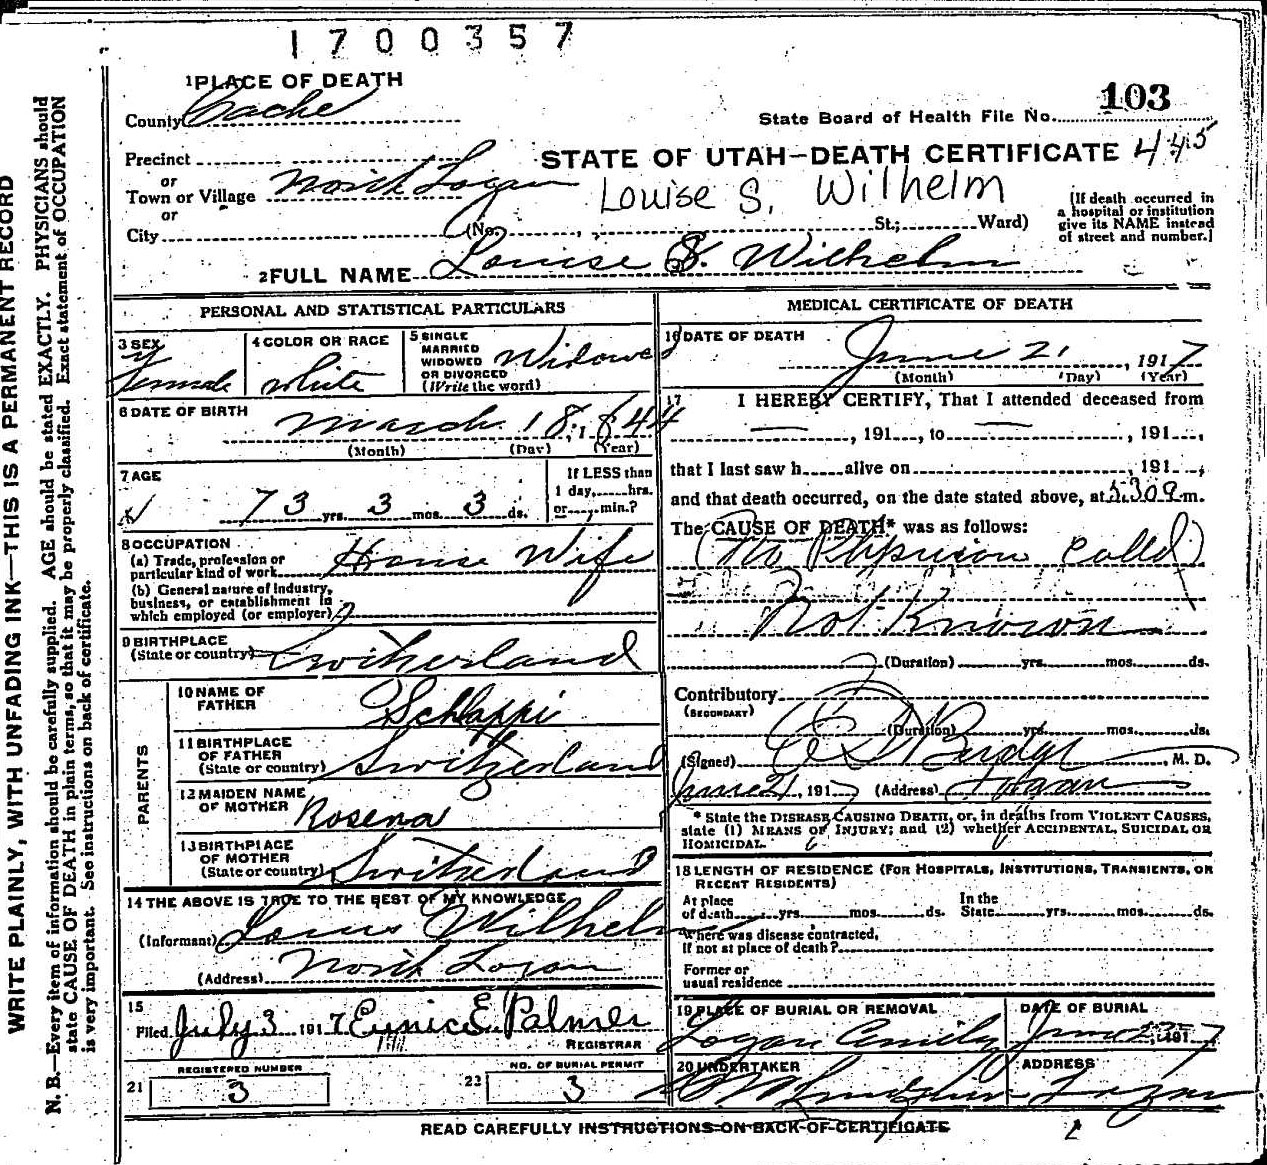 1700357
1 PLACE OF DEATH
County Cache
State Board of Health File No. 103
Precinct
STATE OF UTAH—DEATH CERTIFICATE 445
or
Town or Village North Logan
Louise S. Wilhelm
or
City (No. St.; Ward)
[If death occurred in
a hospital or institution
give its NAME instead
of street and number.]
2 FULL NAME Louise S. Wilhelm
PERSONAL AND STATISTICAL PARTICULARS
3 SEX
Female
4 COLOR OR RACE
white
5 SINGLE
MARRIED
WIDOWED
OR DIVORCED
(Write the word)
Widowed
6 DATE OF BIRTH
March 18, 1844
(Month) (Day) (Year)
7 AGE
73 yrs. 3 mos. 3 ds.
If LESS than
1 day, hrs.
or min.?
8 OCCUPATION
(a) Trade, profession or
particular kind of work House Wife
(b) General nature of industry,
business, or establishment in
which employed (or employer)
9 BIRTHPLACE
(State or country) Switherland
PARENTS
10 NAME OF
FATHER
Schlappi
11 BIRTHPLACE
OF FATHER
(State or country) Switzerland
12 MAIDEN NAME
OF MOTHER Rosena
13 BIRTHPLACE
OF MOTHER
(State or country) Switzerland
14 THE ABOVE IS TRUE TO THE BEST OF MY KNOWLEDGE
(Informant) Louis Wilhelm
(Address) North Logan
15
Filed July 3 1917 Eunice E. Palmer
REGISTRAR
REGISTERED NUMBER
21 3
NO. OF BURIAL PERMIT
22 3
MEDICAL CERTIFICATE OF DEATH
16 DATE OF DEATH
June 21, 1917
(Month) (Day) (Year)
17 I HEREBY CERTIFY, That I attended deceased from
— , 191 , to — , 191 ,
that I last saw h alive on , 191 ,
and that death occurred, on the date stated above, at 5.30 m.
The CAUSE OF DEATH* was as follows:
(No Physician Called)
Not Known
(Duration) yrs. mos. ds.
Contributory
(SECONDARY)
(Duration) yrs. mos. ds.
(Signed) M. D.
June 21, 1917 (Address) Logan
* State the DISEASE CAUSING DEATH, or, in deaths from VIOLENT CAUSES,
state (1) MEANS OF INJURY; and (2) whether ACCIDENTAL, SUICIDAL OR
HOMICIDAL.
18 LENGTH OF RESIDENCE (FOR HOSPITALS, INSTITUTIONS, TRANSIENTS, OR
RECENT RESIDENTS)
At place
of death yrs. mos. ds.
In the
State yrs. mos. ds.
Where was disease contracted,
if not at place of death?
Former or
usual residence
19 PLACE OF BURIAL OR REMOVAL
Logan
DATE OF BURIAL
June 1917
20 UNDERTAKER
ADDRESS
Logan
READ CAREFULLY INSTRUCTIONS ON BACK OF CERTIFICATE
WRITE PLAINLY, WITH UNFADING INK—THIS IS A PERMANENT RECORD
N. B.—Every item of information should be carefully supplied. AGE should be stated EXACTLY. PHYSICIANS should
state CAUSE OF DEATH in plain terms, so that it may be properly classified. Exact statement of OCCUPATION
is very important. See instructions on back of certificate.